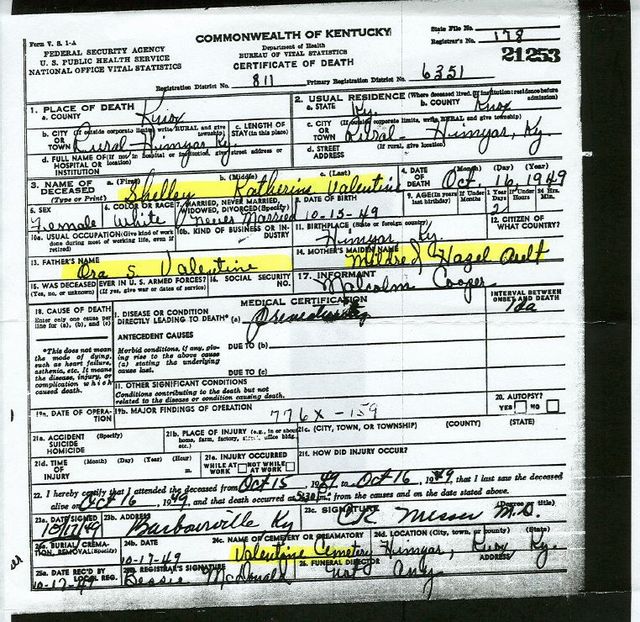 Form V. S. 1-A
COMMONWEALTH OF KENTUCKY
State File No.
FEDERAL SECURITY AGENCY
Department of Health
Registrar's No. 178
U. S. PUBLIC HEALTH SERVICE
BUREAU OF VITAL STATISTICS
21253
NATIONAL OFFICE VITAL STATISTICS
CERTIFICATE OF DEATH
Registration District No. 811 Primary Registration District No. 6351
1. PLACE OF DEATH
a. COUNTY Knox
2. USUAL RESIDENCE (Where deceased lived. If institution: residence before admission)
a. STATE Ky. b. COUNTY Knox
b. CITY OR TOWN (If outside corporate limits, write RURAL and give township) Rural-Himyar, Ky.
c. LENGTH OF STAY (in this place)
c. CITY OR TOWN (If outside corporate limits, write RURAL and give township) Rural-Himyar, Ky.
d. FULL NAME OF HOSPITAL OR INSTITUTION (If not in hospital or institution, give street address or location)
d. STREET ADDRESS (If rural, give location)
3. NAME OF DECEASED (Type or Print)
a. (First) b. (Middle) c. (Last)
Shelley Katherine Valentine
4. DATE OF DEATH (Month) (Day) (Year)
Oct. 16, 1949
5. SEX Female
6. COLOR OR RACE White
7. MARRIED, NEVER MARRIED, WIDOWED, DIVORCED (Specify) Never Married
8. DATE OF BIRTH 10-15-49
9. AGE (In years last birthday) If Under 1 Year Months Days If Under 24 Hrs. Hours Min.
10a. USUAL OCCUPATION (Give kind of work done during most of working life, even if retired)
10b. KIND OF BUSINESS OR INDUSTRY
11. BIRTHPLACE (State or foreign country) Himyar, Ky.
12. CITIZEN OF WHAT COUNTRY?
13. FATHER'S NAME Ora S. Valentine
14. MOTHER'S MAIDEN NAME Mildred Hazel Ault
15. WAS DECEASED EVER IN U. S. ARMED FORCES? (Yes, no, or unknown) (If yes, give war or dates of service)
16. SOCIAL SECURITY NO.
17. INFORMANT Malcolm Cooper
18. CAUSE OF DEATH
Enter only one cause per line for (a), (b), and (c)
MEDICAL CERTIFICATION
INTERVAL BETWEEN ONSET AND DEATH
I. DISEASE OR CONDITION DIRECTLY LEADING TO DEATH* (a) Prematurity
*This does not mean the mode of dying, such as heart failure, asthenia, etc. It means the disease, injury, or complication which caused death.
ANTECEDENT CAUSES
Morbid conditions, if any, giving rise to the above cause (a) stating the underlying cause last.
DUE TO (b)
DUE TO (c)
II. OTHER SIGNIFICANT CONDITIONS
Conditions contributing to the death but not related to the disease or condition causing death.
19a. DATE OF OPERATION
19b. MAJOR FINDINGS OF OPERATION
776X-159
20. AUTOPSY?
YES NO
21a. ACCIDENT SUICIDE HOMICIDE (Specify)
21b. PLACE OF INJURY (e.g., in or about home, farm, factory, street, office bldg. etc.)
21c. (CITY, TOWN, OR TOWNSHIP) (COUNTY) (STATE)
21d. TIME OF INJURY (Month) (Day) (Year) (Hour) m
21e. INJURY OCCURRED
WHILE AT WORK NOT WHILE AT WORK
21f. HOW DID INJURY OCCUR?
22. I hereby certify that I attended the deceased from Oct 15, 1949 to Oct 16, 1949, that I last saw the deceased
alive on Oct 16, 1949 and that death occurred at m., from the causes and on the date stated above.
23a. DATE SIGNED 10/17/49
23b. ADDRESS Barbourville Ky
23c. SIGNATURE CR Messer M.D. (Degree or title)
24a. BURIAL, CREMATION, REMOVAL (Specify)
24b. DATE 10-17-49
24c. NAME OF CEMETERY OR CREMATORY Valentine Cemetery
24d. LOCATION (City, town, or county) (State) Himyar, Knox Ky.
25a. DATE REC'D BY LOCAL REG. 10-17-49
25b. REGISTRAR'S SIGNATURE Bessie McDonald
26. FUNERAL DIRECTOR ADDRESS Not Any